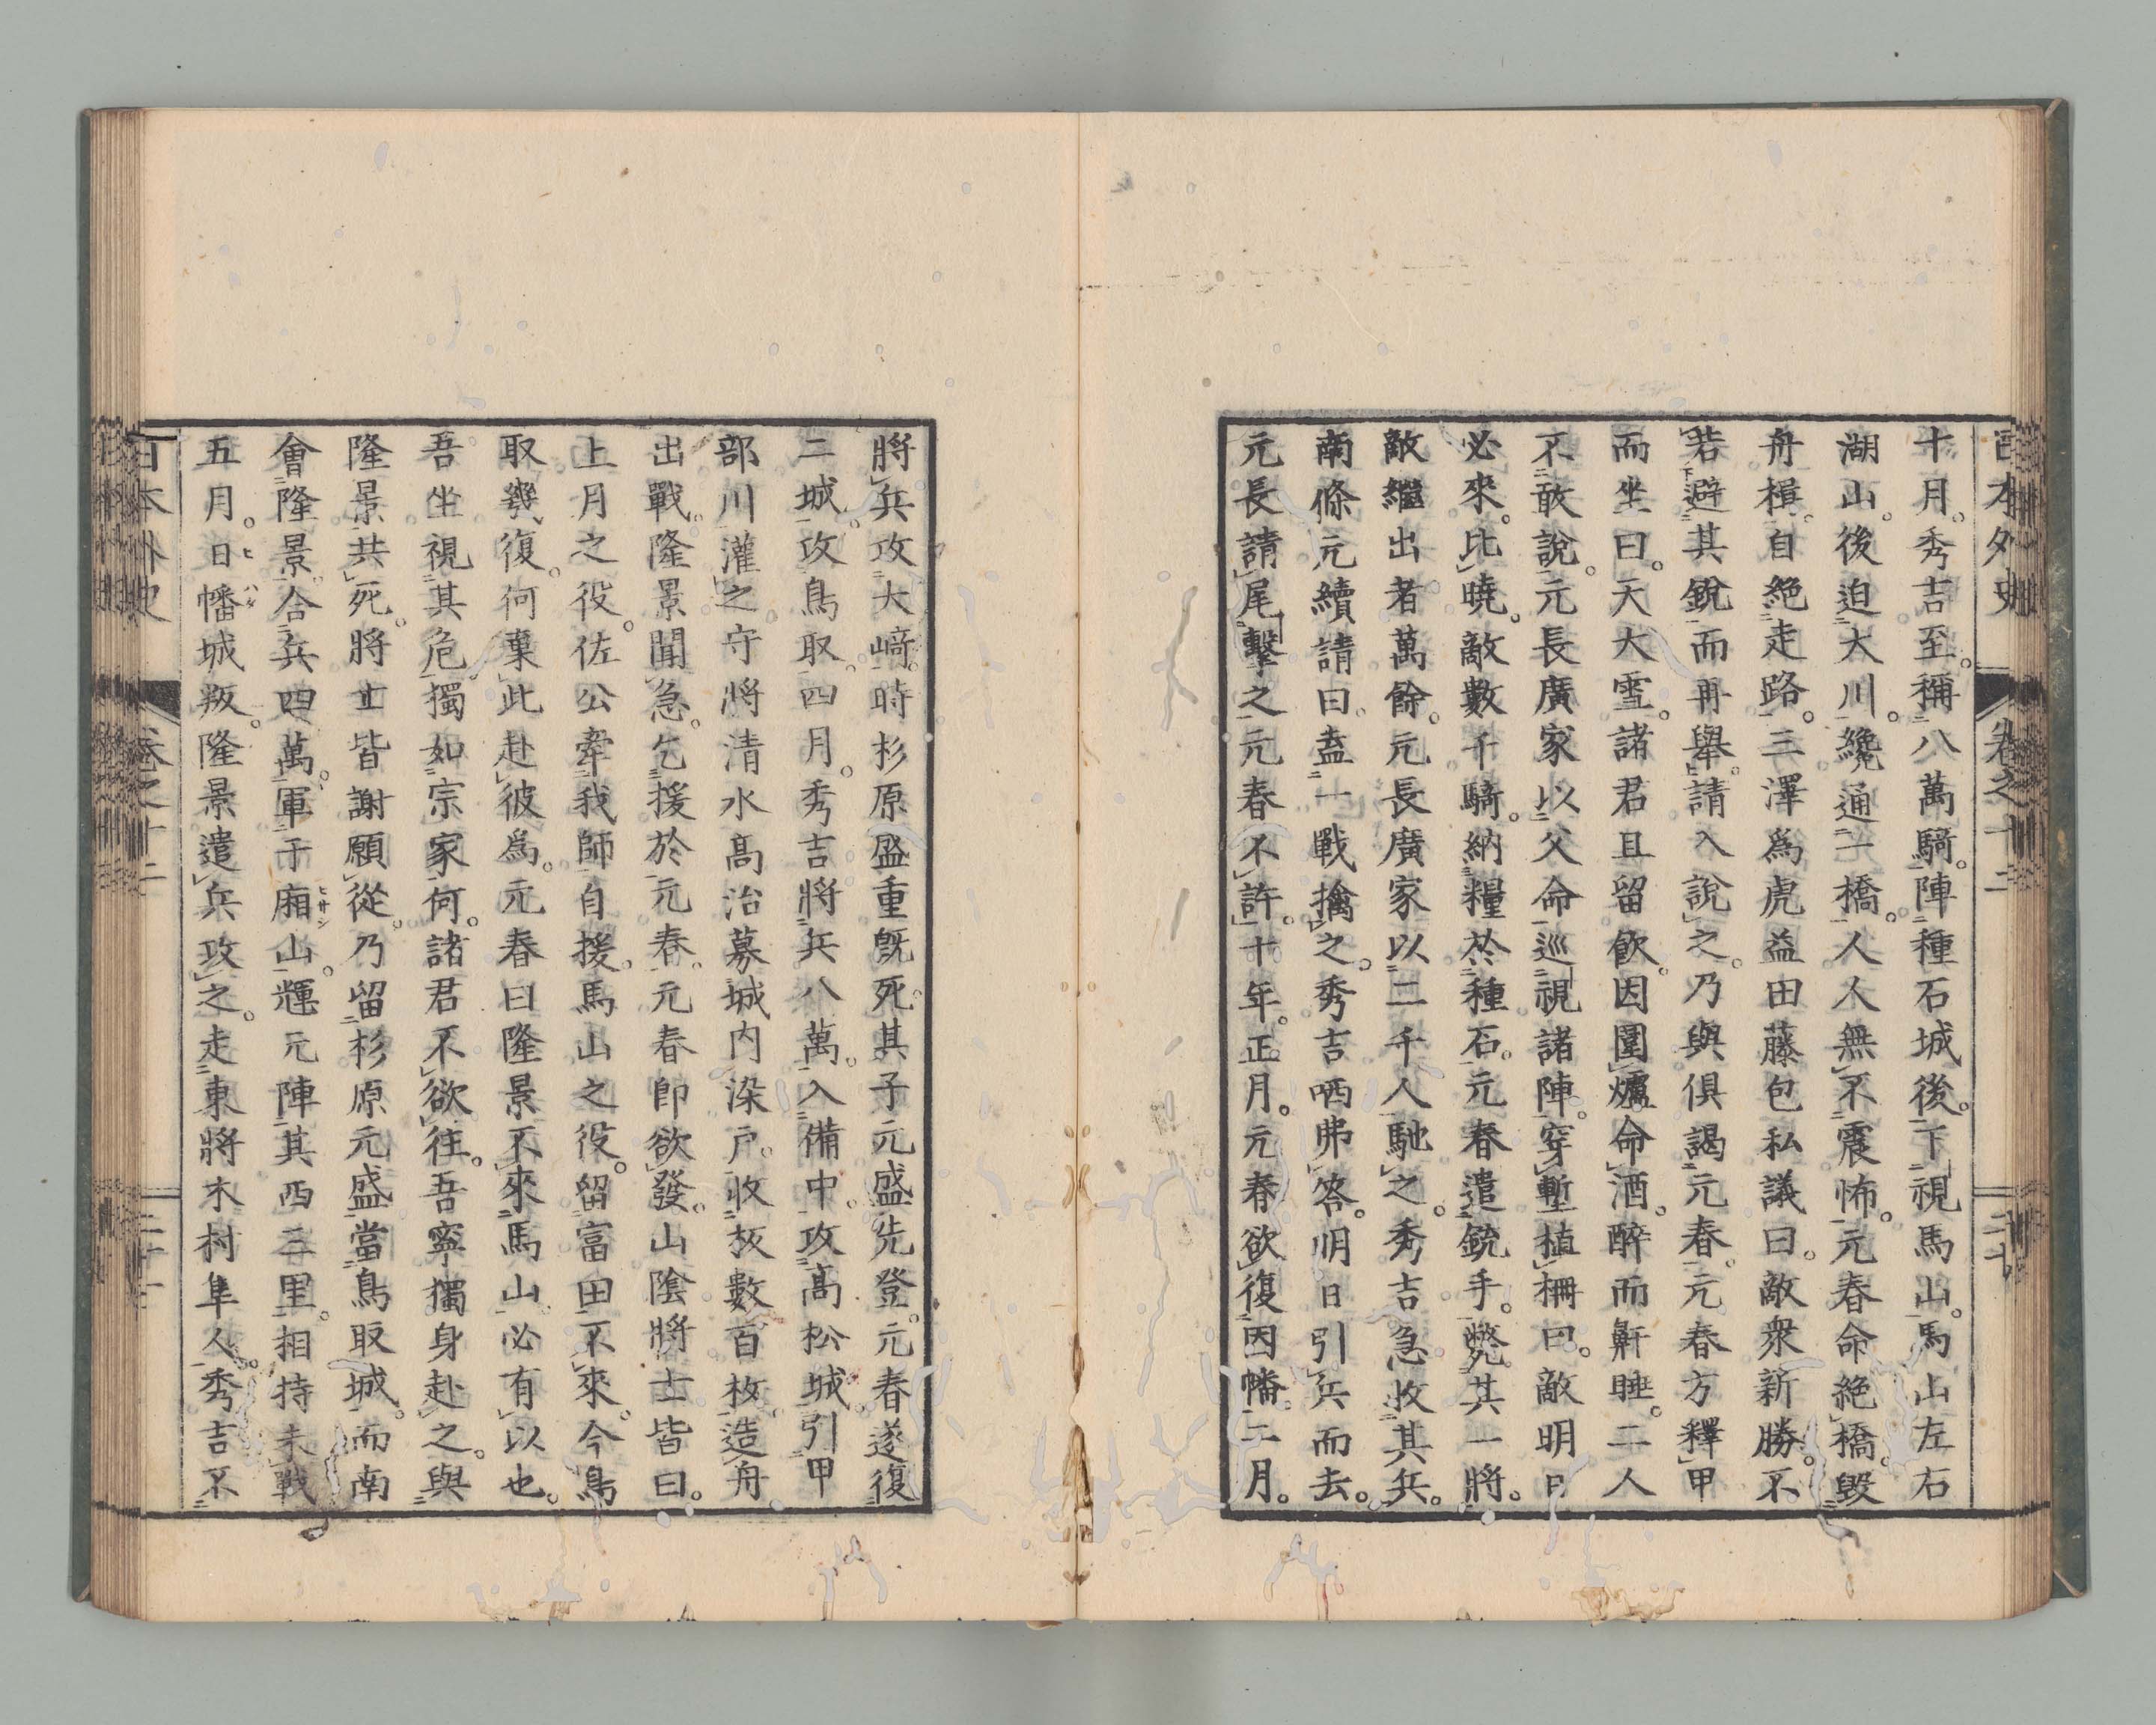 日本外史 卷之十二
十月。秀吉至。稱八萬騎。陣種石城後。下視馬山。馬山左右
湖山。後迫大川。纔通一橋。人人無不震怖。元春命絶橋。毀
舟楫。自絶走路。三澤爲虎益田藤包私議曰。敵衆新勝。不
若避其銳而再舉。請入說之。乃與俱謁元春。元春方釋甲
而坐曰。天大雪。諸君且留飮。因圍爐命酒。醉而鼾睡。二人
不敢說。元長廣家以父命巡視諸陣。穿塹植柵曰。敵明日
必來。比曉。敵數千騎。納糧於種石。元春遣銃手。斃其一將。
敵繼出者萬餘。元長廣家以二千人馳之。秀吉急收其兵。
南條元續請曰。盍一戰擒之。秀吉哂弗答。明日引兵而去。
元長請尾擊之。元春不許。十年。正月。元春欲復因幡。二月。
將兵攻大﨑。時杉原盛重旣死。其子元盛先登。元春遂復
二城。攻鳥取。四月。秀吉將兵八萬。入備中。攻高松城。引甲
部川灌之。守將清水高治募城内染戸。收板數百枚。造舟
出戰。隆景聞急。乞援於元春。元春卽欲發。山陰將士皆曰。
上月之役。佐公牽我師自援。馬山之役。留富田不來。今鳥
取幾復。何棄此赴彼爲。元春曰隆景不來馬山。必有以也。
吾坐視其危。獨如宗家何。諸君不欲往。吾寧獨身赴之。與
隆景共死。將士皆謝願從。乃留杉原元盛。當鳥取城。而南
會隆景。合兵四萬。軍于廂山。輝元陣其西三里。相持未戰
五月。日幡城叛。隆景遣兵攻之。走東將木村隼人。秀吉不
日本外史 卷之十二